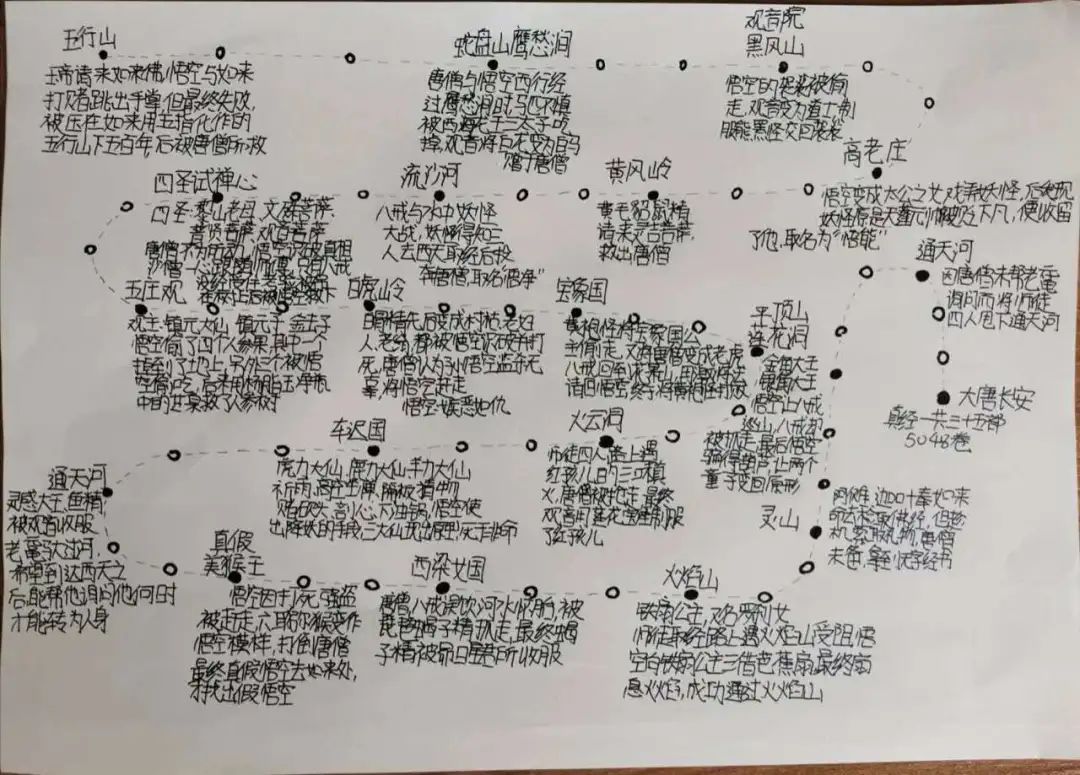 五行山
玉帝请来如来佛,悟空与如来
打赌跳出手掌,但最终失败,
被压在如来用五指化作的
五行山下五百年后被唐僧所救
蛇盘山鹰愁涧
唐僧与悟空西行经
过鹰愁涧时马匹不慎
被西海龙王三太子吃
掉,观音将白龙变为白马
赠于唐僧
观音院
黑风山
悟空的袈裟被偷
走,观音变为道士制
服熊黑怪交回袈裟
高老庄
悟空变成太公之女戏弄妖怪,后发现
妖怪原是天蓬元帅被贬下凡,便收留
了他,取名为“悟能”
黄风岭
黄毛貂鼠精
请来灵吉菩萨,
救出唐僧
流沙河
八戒与水中妖怪
大战,妖怪得知二
人去西天取经后投
奔唐僧,取名“悟净”
四圣试禅心
四圣:黎山老母,文殊菩萨,
普贤菩萨,观音菩萨
唐僧不为所动,悟空识破真相
沙僧一心跟随师傅,只有八戒
没经受住考验被
在树上后被悟空救下
五庄观
观主:镇元大仙 镇元子 金击子
悟空偷了四个人参果,其中一个
掉到了地上,另外三个被悟
空偷吃,后来用杨柳玉净瓶
中的甘泉救了人参树
白虎岭
白骨精先后变成村姑,老妇
人,老翁,都被悟空识破并打
死,唐僧认为悟空滥杀无
辜,将悟空赶走
悟空:嫉恶如仇
宝象国
黄袍怪将宝象国公
主偷走,又将唐僧变成老虎
八戒回到花果山,用激将法
请回悟空,终于将黄袍怪打败
平顶山
莲花洞
金角大王
银角大王
悟空让八戒
巡山,八戒却
被抓走,最后悟空
骗得葫芦,让两个
童子变回原形
火云洞
师徒四人路上遇
红孩儿,目的三口镇
火,唐僧被抱走,最终
观音用莲花宝座制服
了红孩儿
车迟国
虎力大仙,鹿力大仙,羊力大仙
祈雨,高空坐禅,隔板猜物
赌砍头,剖心,下油锅,悟空使
出降妖的手段,三大仙现出原型,死于非命
通天河
灵感大王,鱼精
被观音收服
老鼋驮过河,
希望到达西天之
后,能帮他询问他何时
才能转为人身
真假
美猴王
悟空因打死强盗
被赶走,六耳猕猴变作
悟空模样,打倒唐僧
最终真假悟空去如来处,
才找出假悟空
西梁女国
唐僧,八戒误饮河水怀胎,被
琵琶蝎子精抓走,最终蝎
子精被昴日星君所收服
火焰山
铁扇公主,又名罗刹女
师徒取经路上遇火焰山受阻,悟
空向铁扇公主三借芭蕉扇,最终扇
息火焰,成功通过火焰山
灵山
阿傩,迦叶奉如来
命去捡取佛经,但趁
机索取礼物,唐僧
未备,拿到无字经书
通天河
因唐僧未帮老鼋
询问而将师徒
四人甩下通天河
大唐长安
真经一共三十五部
5048卷